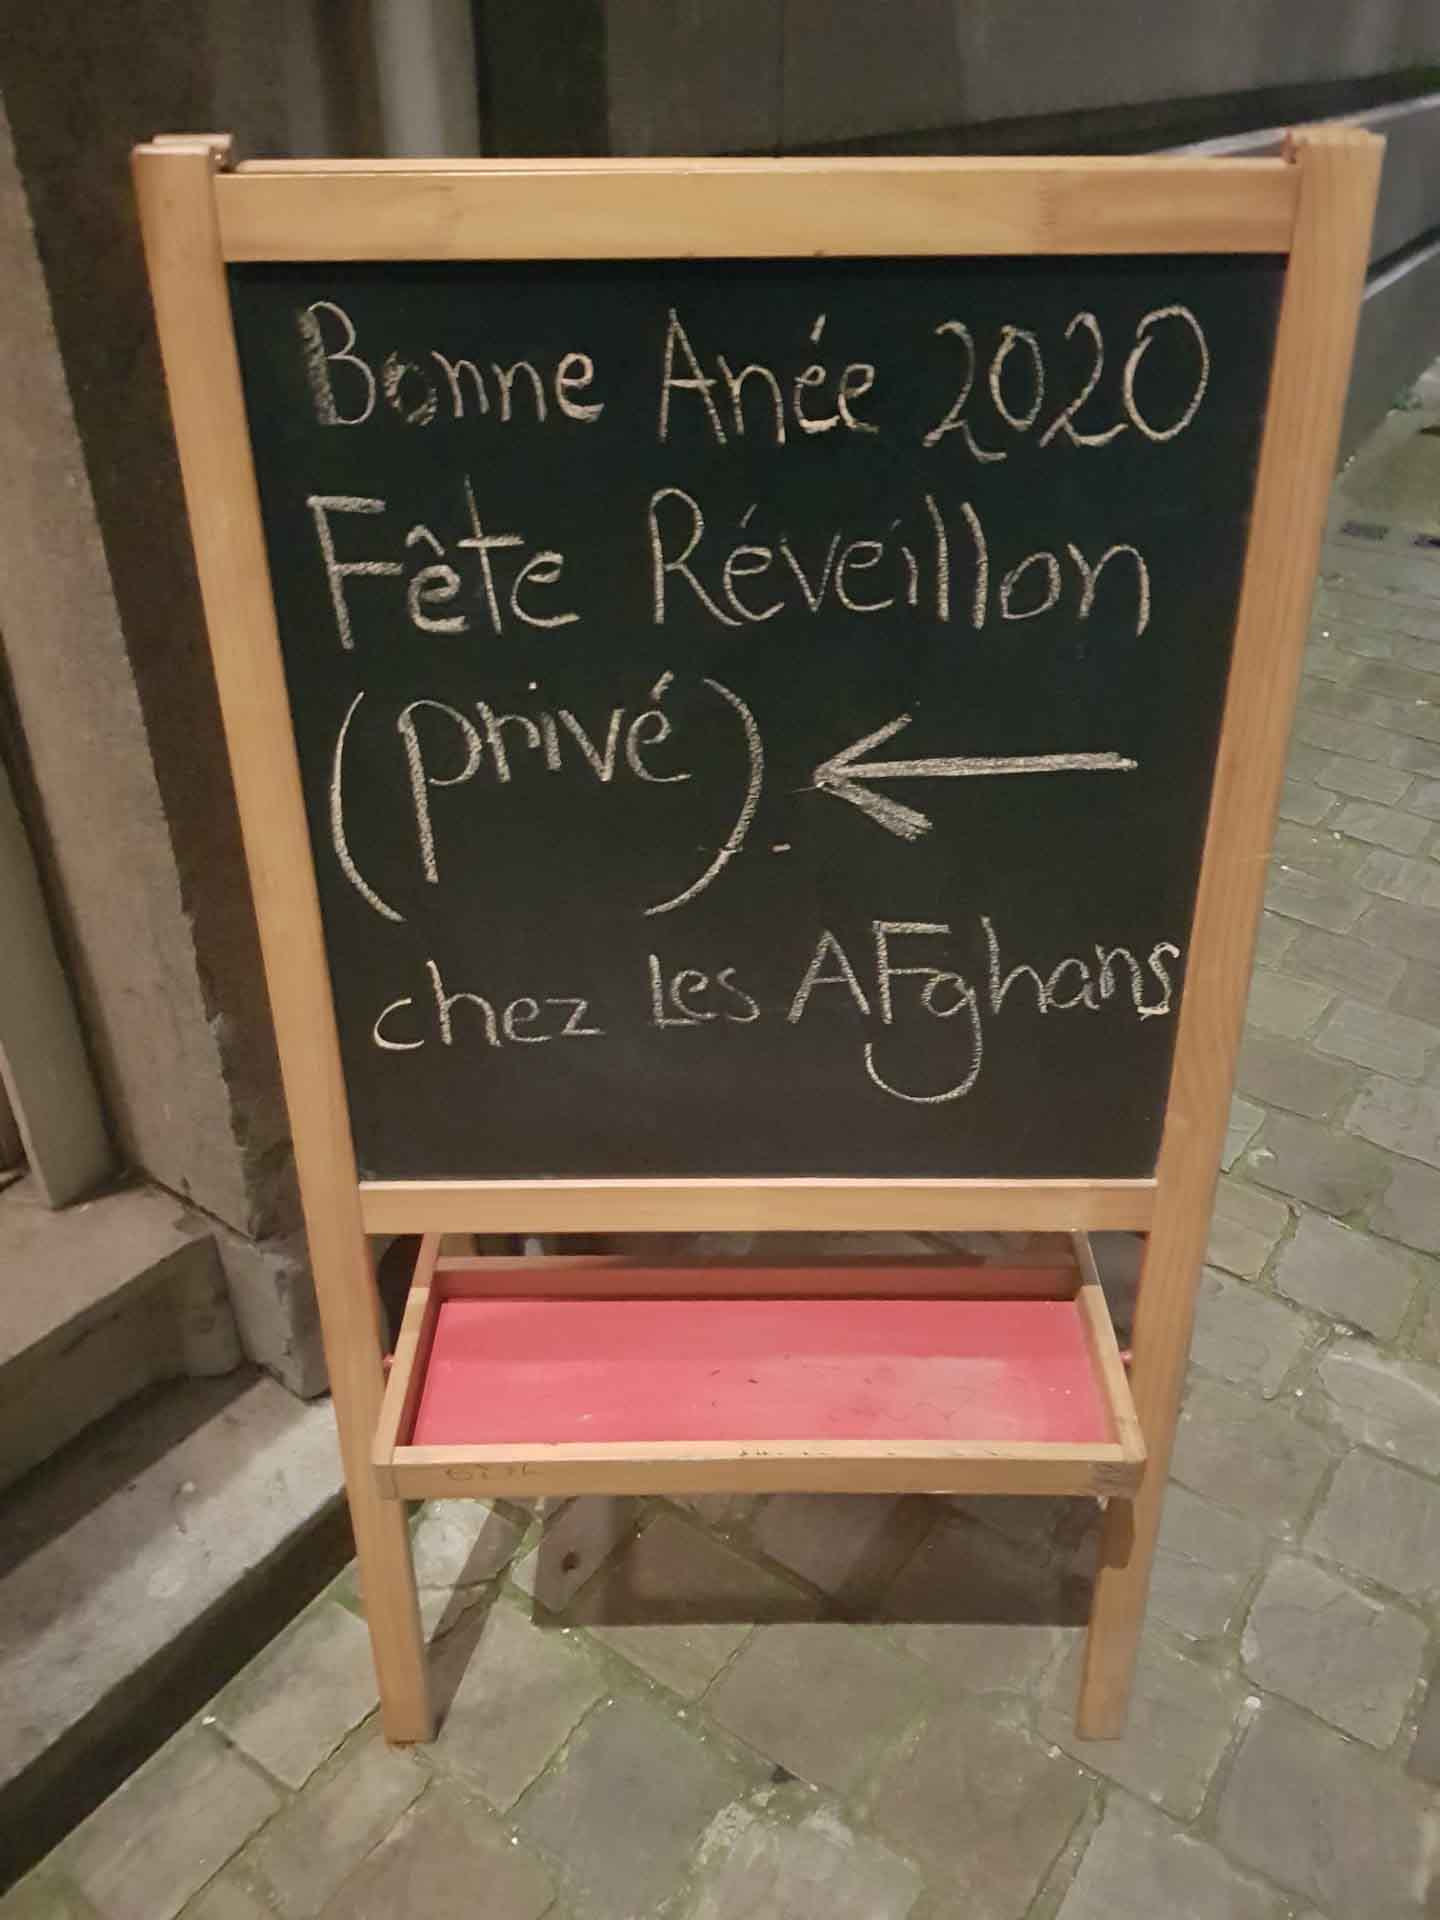 Bonne Anée 2020
Fête Réveillon
(privé). ←
chez Les AFghans